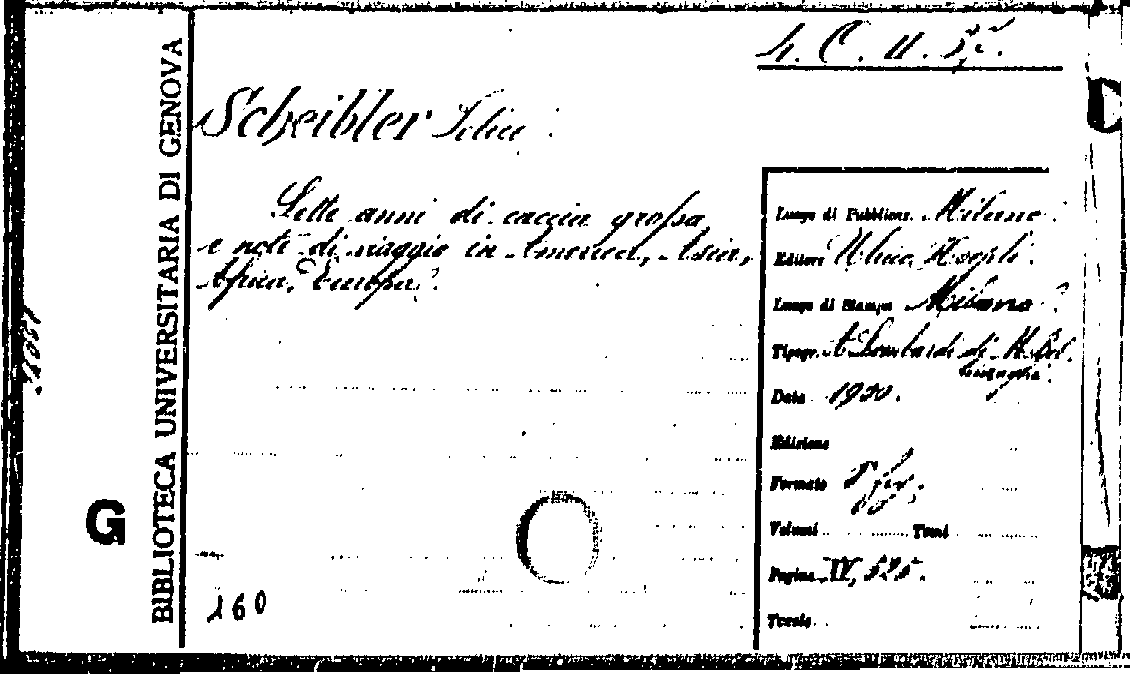 4. C. II. 55.
Scheibler Felice.
Sette anni di caccia grossa
e note di viaggio in America, Asia,
Africa, Europa.
BIBLIOTECA UNIVERSITARIA DI GENOVA
G
160
Luogo di Pubblicaz. Milano.
Editore Ulrico Hoepli.
Luogo di Stampa Milano.
Tipogr. A. Lombardi di M. Bel
linzaghi.
Data 1900.
Edizione
Formato 8° fig.
Volumi Tomi
Pagine IV, 525.
Tavole